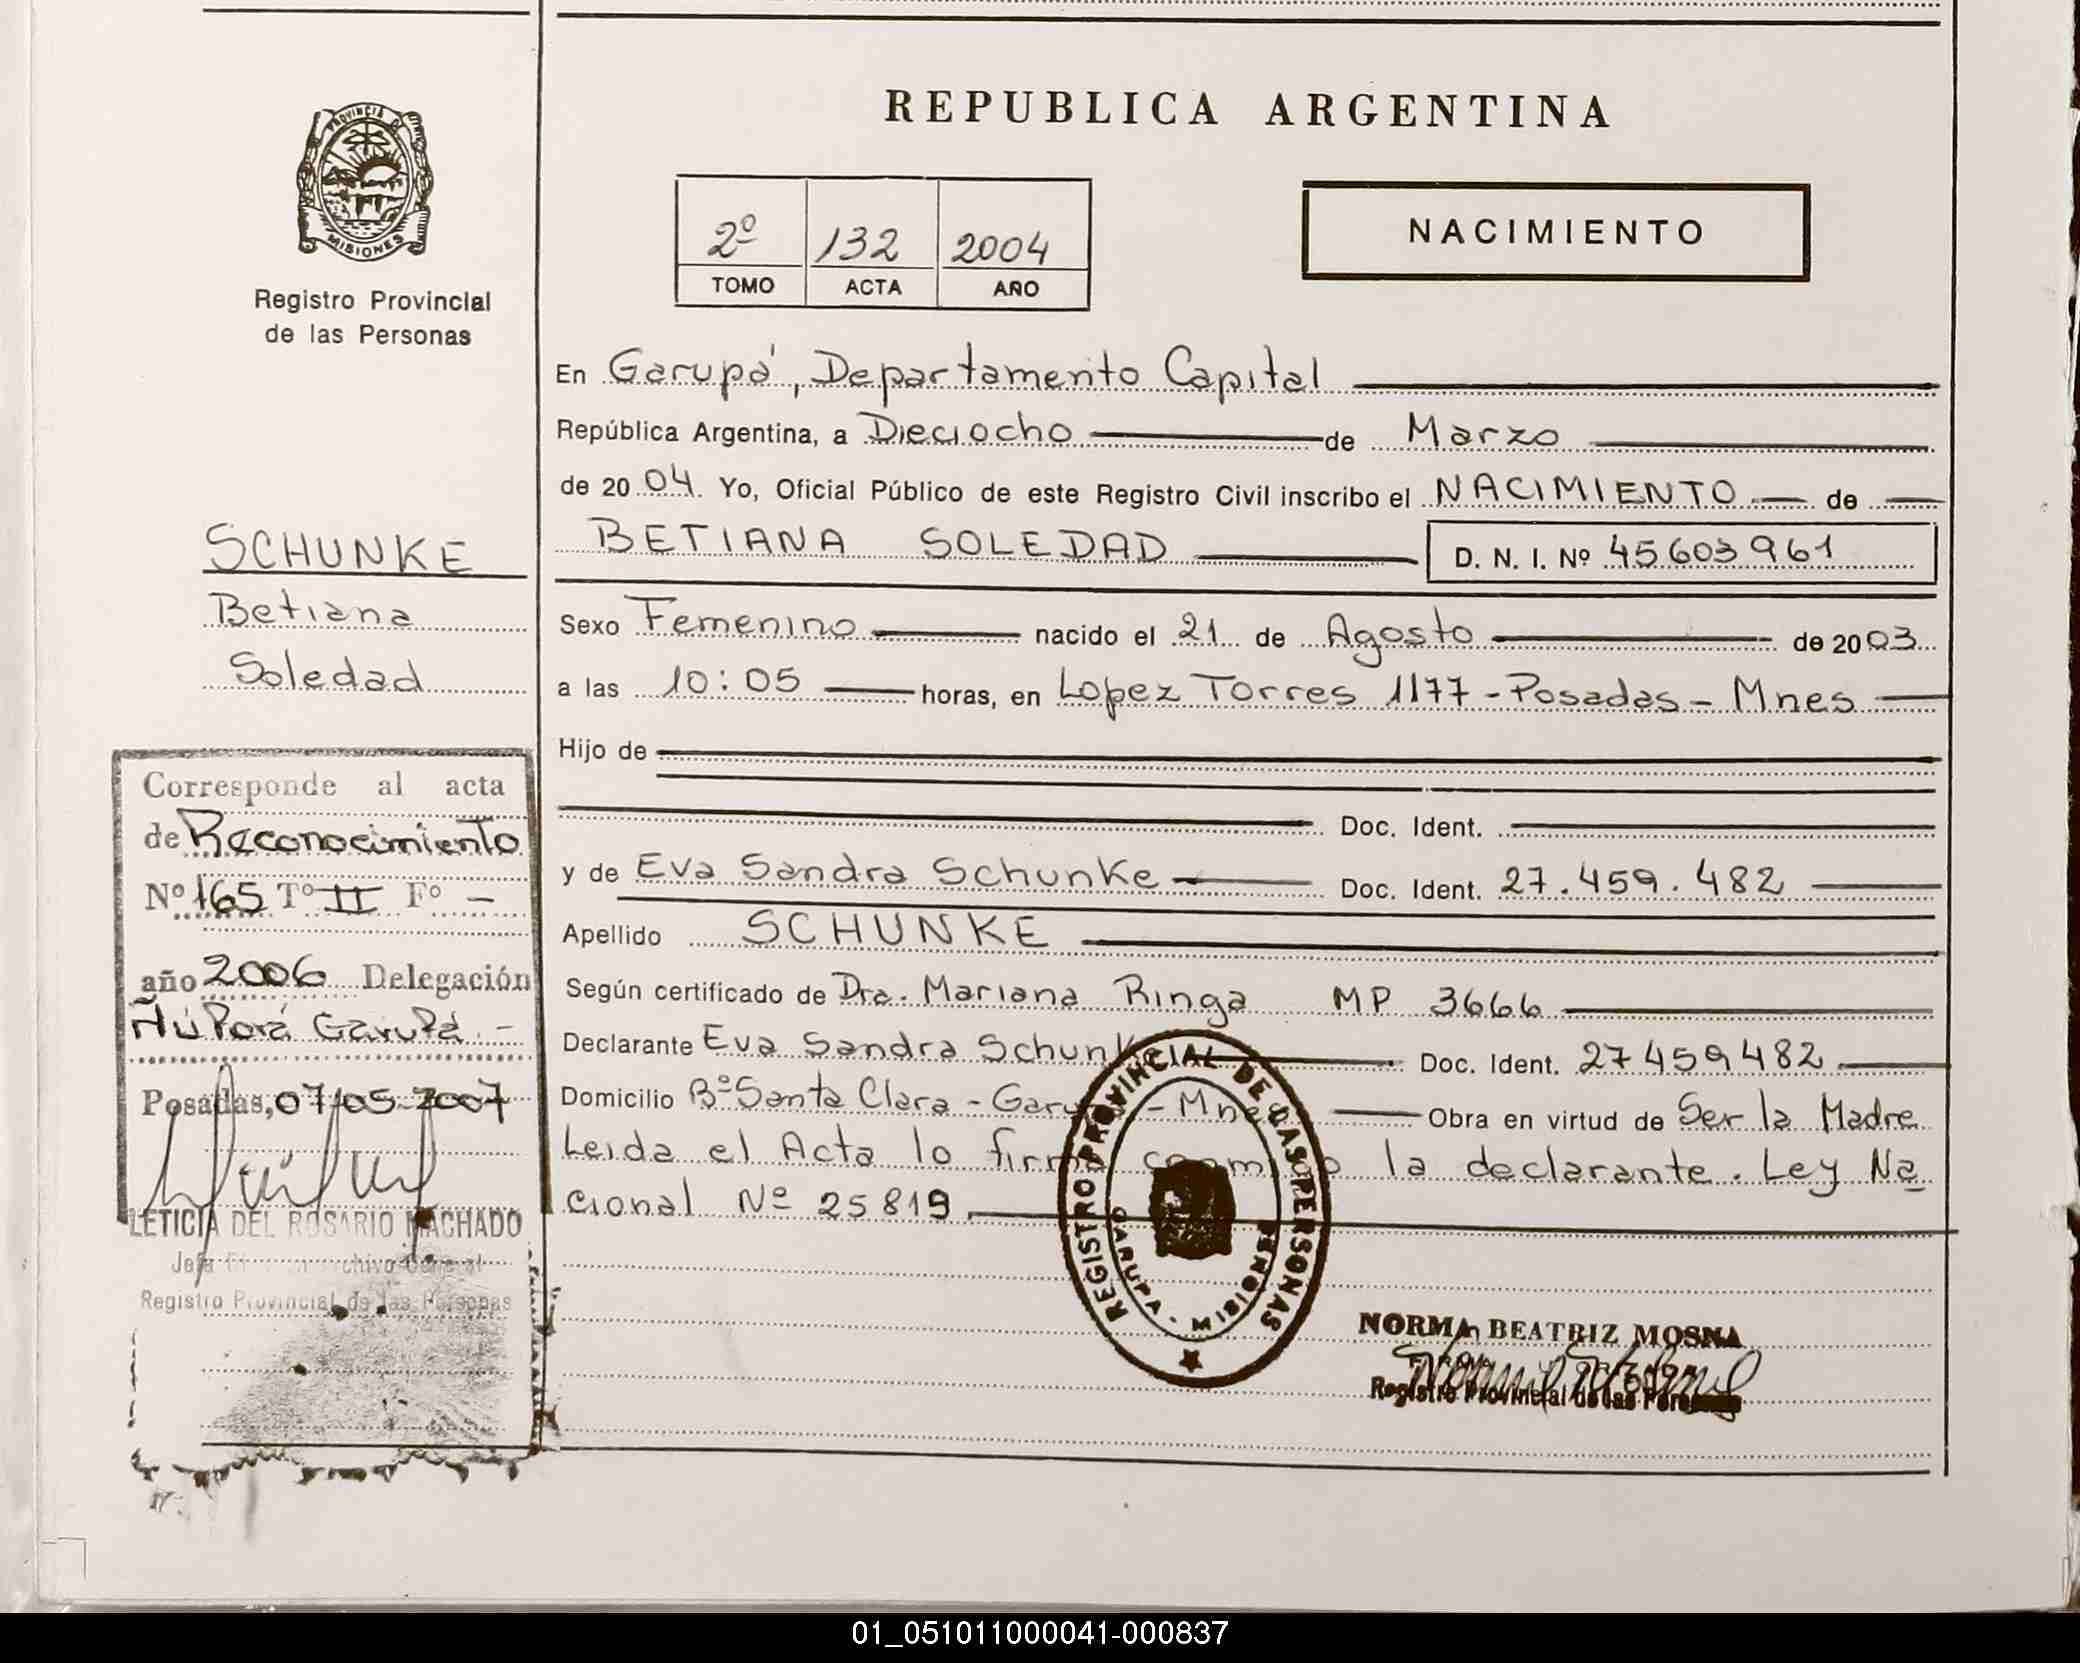 PROVINCIA DE
MISIONES
Registro Provincial
de las Personas
REPUBLICA ARGENTINA
2º 132 2004
TOMO ACTA AÑO
NACIMIENTO
En Garupá, Departamento Capital
República Argentina, a Dieciocho de Marzo
de 2004. Yo, Oficial Público de este Registro Civil inscribo el NACIMIENTO de
BETIANA SOLEDAD D. N. I. Nº 45603961
Sexo Femenino nacido el 21 de Agosto de 2003
a las 10:05 horas, en Lopez Torres 1177-Posadas-Mnes
Hijo de
Doc. Ident.
y de Eva Sandra Schunke Doc. Ident. 27.459.482
Apellido SCHUNKE
Según certificado de Dra. Mariana Ringa MP 3666
Declarante Eva Sandra Schunke Doc. Ident. 27459482
Domicilio Bº Santa Clara - Garupá - Mnes Obra en virtud de Ser la Madre
Leida el Acta lo firma conmigo la declarante. Ley Na
cional Nº 25819
SCHUNKE
Betiana
Soledad
Corresponde al acta
de Reconocimiento
Nº 165 Tº II Fº -
año 2006 Delegación
Ñú Porá Garupá.-
Posadas, 07/05/2007
LETICIA DEL ROSARIO MACHADO
Registro Provincial de las Personas
REGISTRO PROVINCIAL DE LAS PERSONAS
GARUPA - MISIONES
NORMA BEATRIZ MOSNA
Registro Provincial de las Personas
01_051011000041-000837